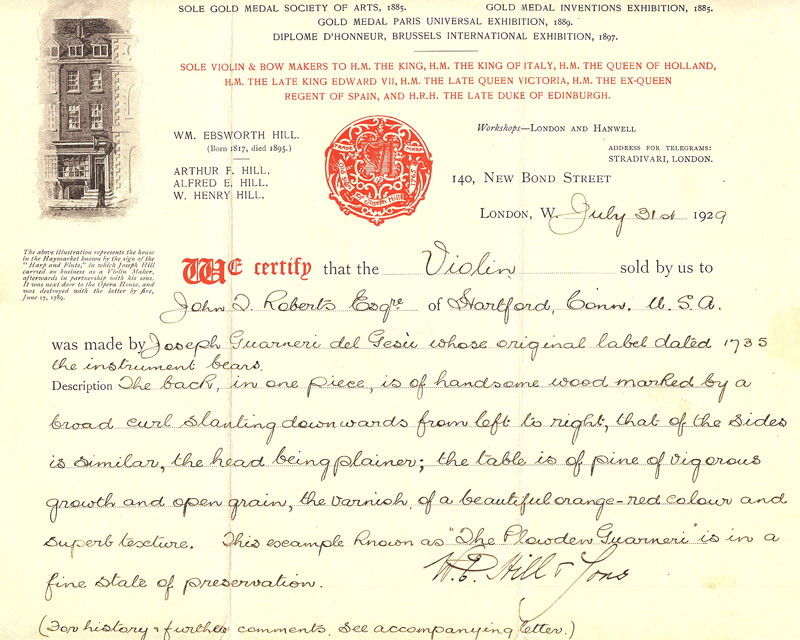 SOLE GOLD MEDAL SOCIETY OF ARTS, 1885. GOLD MEDAL INVENTIONS EXHIBITION, 1885.
GOLD MEDAL PARIS UNIVERSAL EXHIBITION, 1889.
DIPLOME D'HONNEUR, BRUSSELS INTERNATIONAL EXHIBITION, 1897.
SOLE VIOLIN & BOW MAKERS TO H.M. THE KING, H.M. THE KING OF ITALY, H.M. THE QUEEN OF HOLLAND,
H.M. THE LATE KING EDWARD VII, H.M. THE LATE QUEEN VICTORIA, H.M. THE EX-QUEEN
REGENT OF SPAIN, AND H.R.H. THE LATE DUKE OF EDINBURGH.
WM. EBSWORTH HILL.
(Born 1817, died 1895.)
ARTHUR F. HILL.
ALFRED E. HILL.
W. HENRY HILL.
TRADE MARK
Old sign of Joseph Hill 1762
Workshops—LONDON AND HANWELL
ADDRESS FOR TELEGRAMS:
STRADIVARI, LONDON.
140, NEW BOND STREET
LONDON, W. July 31st 1929
The above illustration represents the house
in the Haymarket known by the sign of the
"Harp and Flute," in which Joseph Hill
carried on business as a Violin Maker,
afterwards in partnership with his sons.
It was next door to the Opera House, and
was destroyed with the latter by fire,
June 17, 1789.
WE certify that the Violin sold by us to
John T. Roberts Esqre of Hartford, Conn. U.S.A.
was made by Joseph Guarneri del Gesù whose original label dated 1735
the instrument bears.
Description The back, in one piece, is of handsome wood marked by a
broad curl slanting downwards from left to right, that of the sides
is similar, the head being plainer; the table is of pine of vigorous
growth and open grain, the varnish, of a beautiful orange-red colour and
superb texture. This example known as "The Plowden Guarneri" is in a
fine state of preservation.
W.E. Hill & Sons
(For history & further comments, see accompanying letter.)